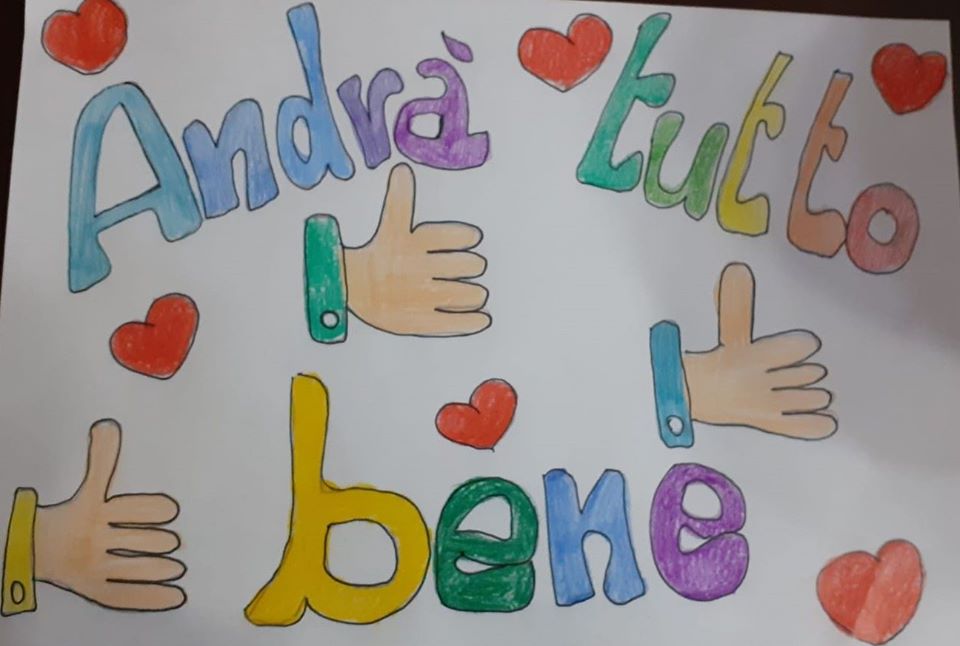 Andrà tutto
bene